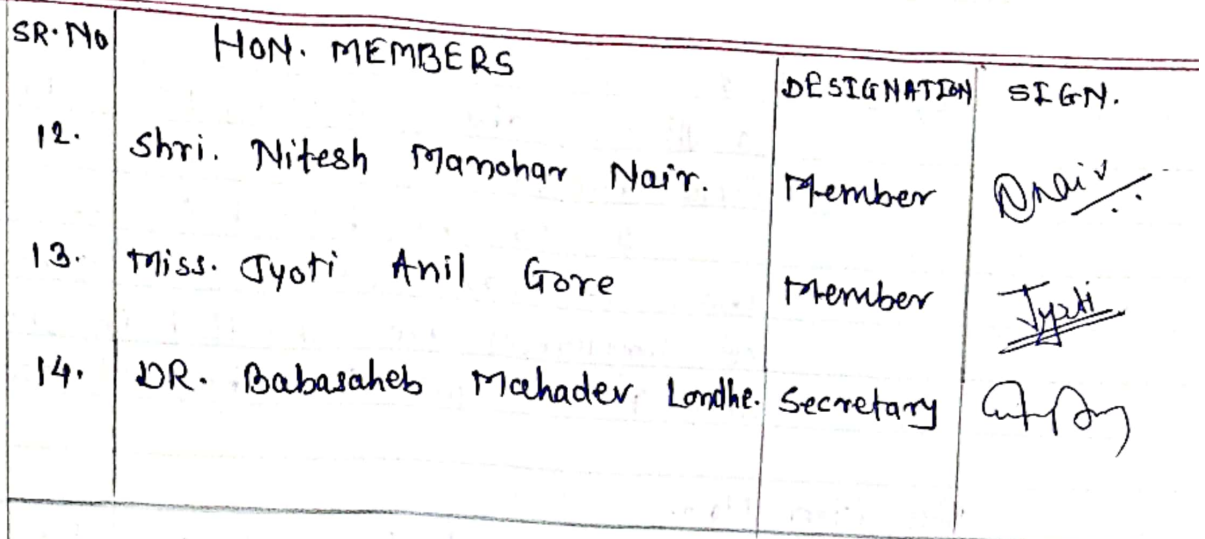 SR. No HON. MEMBERS DESIGNATION SIGN.
12. Shri. Nitesh Manohar Nair. Member Nair
13. Miss. Jyoti Anil Gore Member Jyoti
14. DR. Babasaheb Mahadev Londhe. Secretary